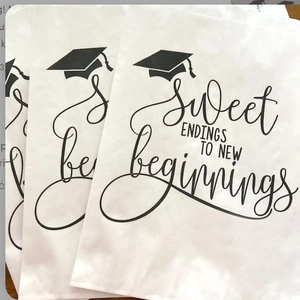 Sweet
ENDINGS
TO NEW
beginnings
S
be